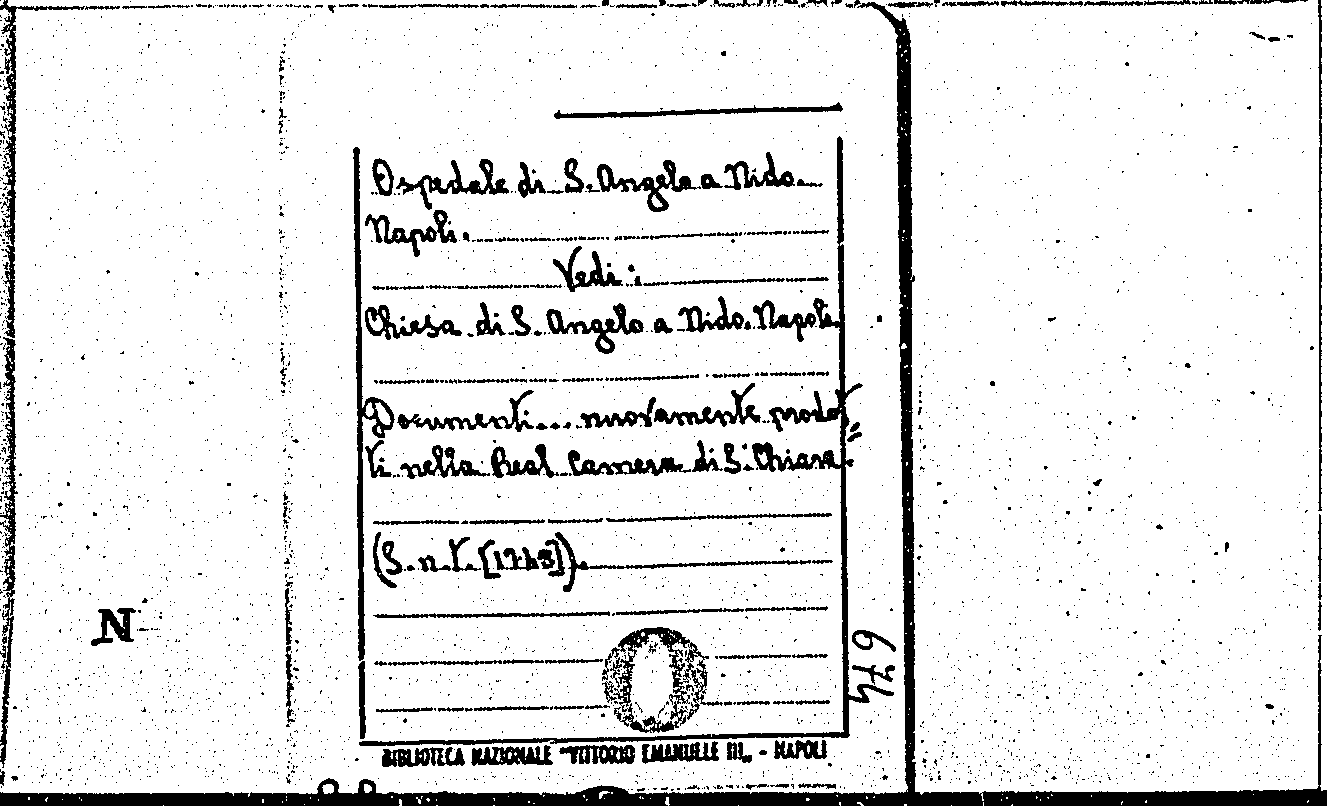 Ospedale di S. Angelo a Nido.
Napoli.
Vedi:
Chiesa di S. Angelo a Nido. Napoli.
Documenti... nuovamente prodot=
ti nella Real Camera di S. Chiara.
(S. n. t. [1743]).
N
674
BIBLIOTECA NAZIONALE "VITTORIO EMANUELE III„ - NAPOLI